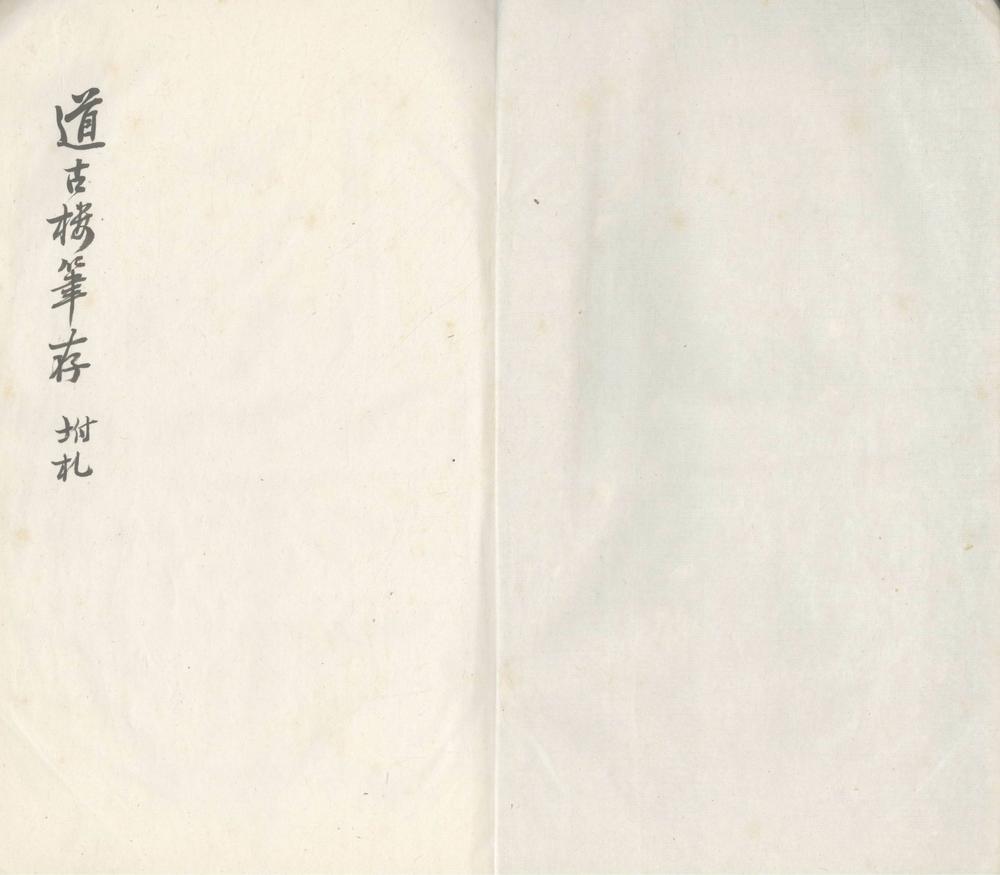 道古楼筆存 坿札